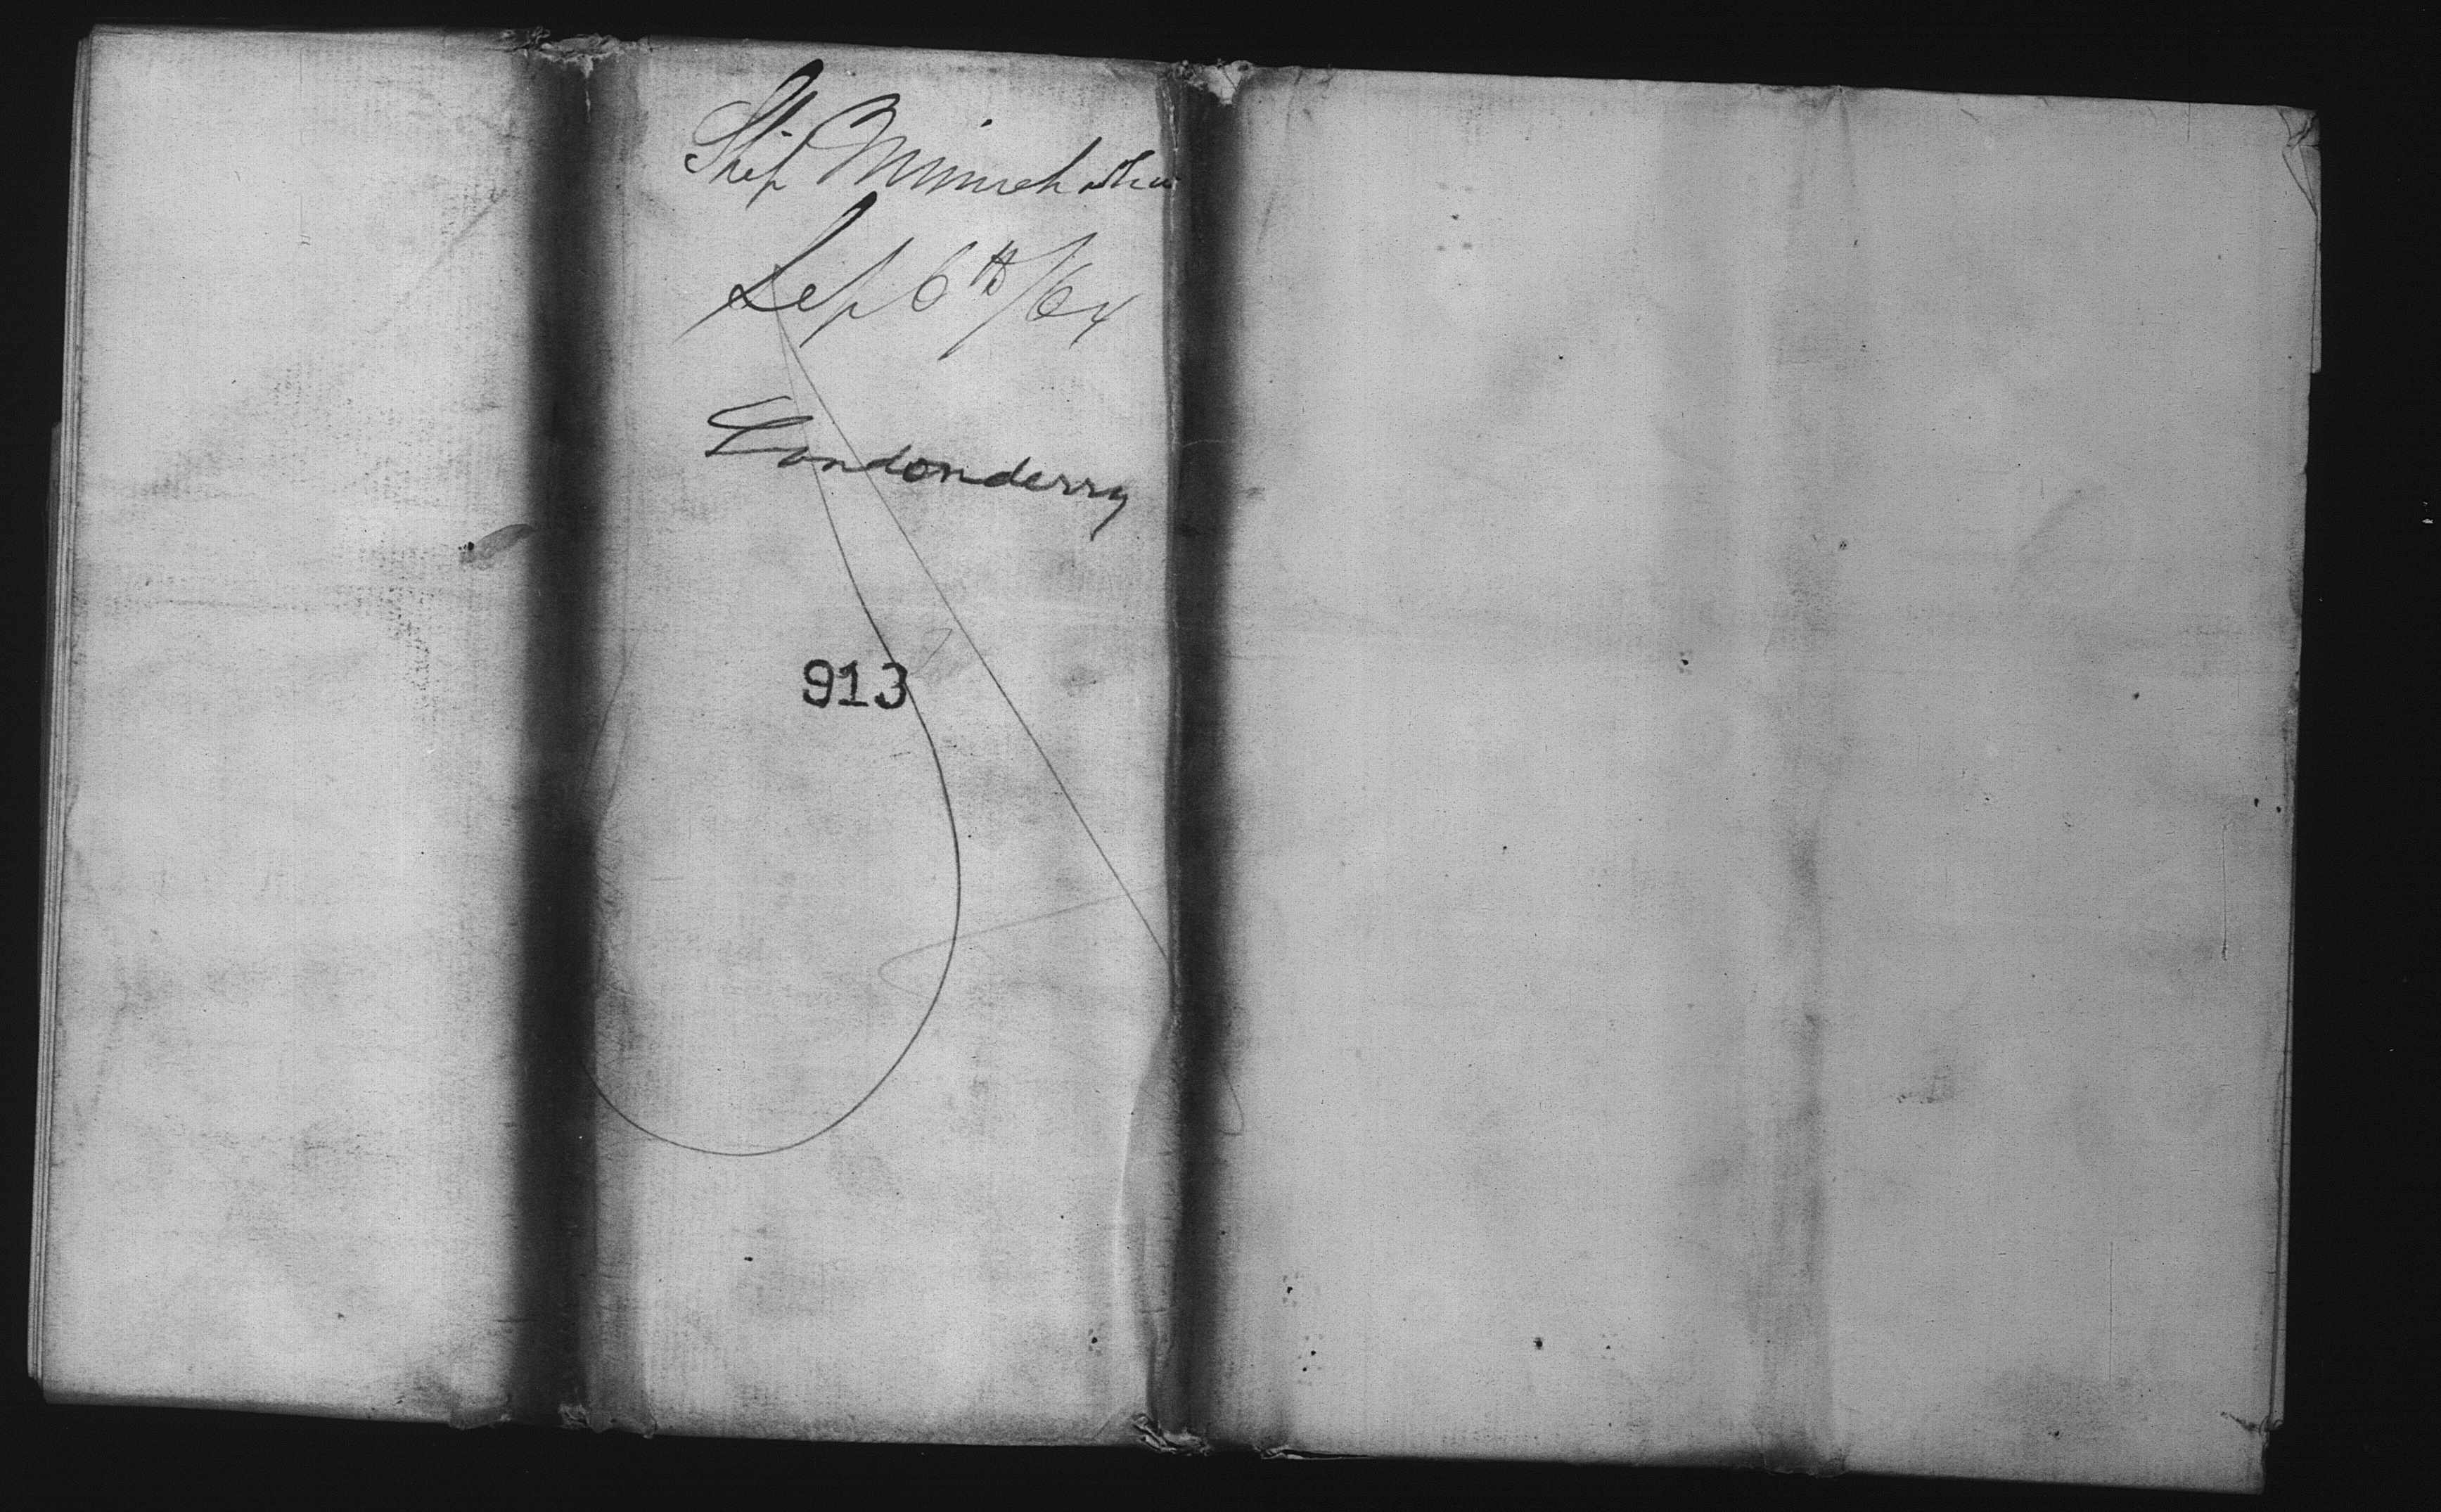 Ship Minnehaha
Sep 6th/64
Londonderry
913